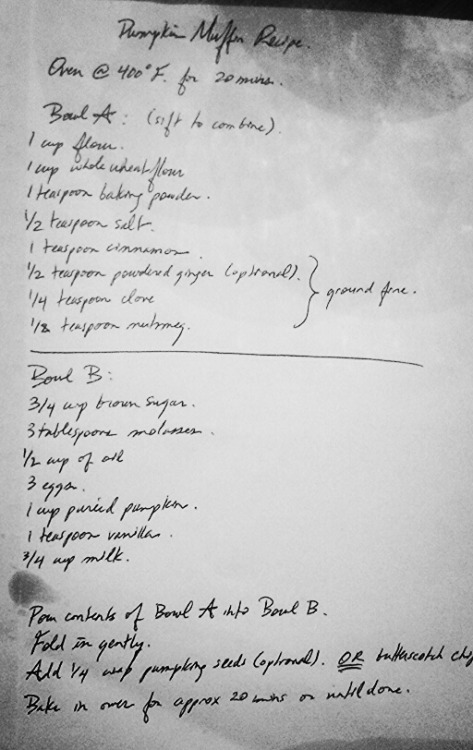 Pumpkin Muffin Recipe.
Oven @ 400°F. for 20 mins.
Bowl A: (sift to combine).
1 cup flour.
1 cup whole wheat flour
1 teaspoon baking powder.
1/2 teaspoon salt.
1 teaspoon cinnamon.
1/2 teaspoon powdered ginger (optional).
1/4 teaspoon clove
1/8 teaspoon nutmeg.
ground fine.
Bowl B:
3/4 cup brown sugar.
3 tablespoons molasses.
1/2 cup of oil
3 eggs.
1 cup puréed pumpkin.
1 teaspoon vanilla.
3/4 cup milk.
Pour contents of Bowl A into Bowl B.
Fold in gently.
Add 1/4 cup pumpking seeds (optional). OR butterscotch chip
Bake in oven for approx 20 mins or until done.